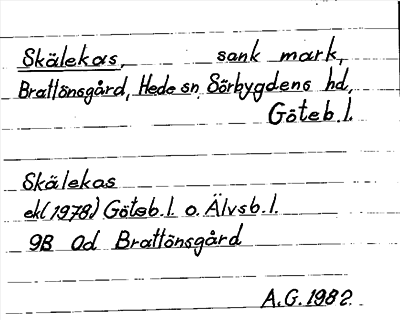 Skälekas, sank mark,
Brattönsgård, Hede sn. Sörbygdens hd,
Göteb.l.
Skälekas
ekl(1978) Göteb.l. o. Älvsb.l.
9B 0d Brattönsgård
A.G.1982.